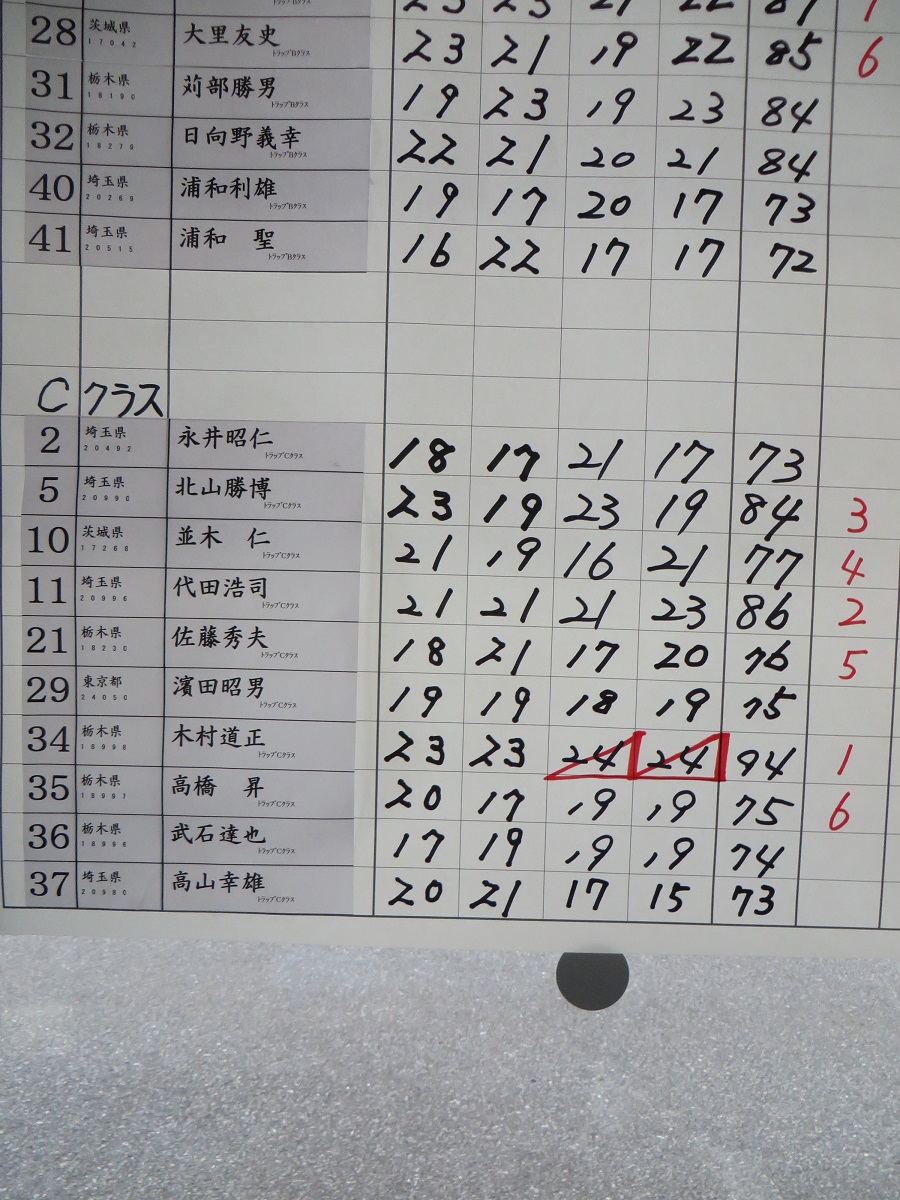 28 茨城県 17042 大里友史 トラップBクラス 23 21 19 22 85 6
31 栃木県 18190 苅部勝男 トラップBクラス 19 23 19 23 84
32 栃木県 18278 日向野義幸 トラップBクラス 22 21 20 21 84
40 埼玉県 20269 浦和利雄 トラップBクラス 19 17 20 17 73
41 埼玉県 20515 浦和 聖 トラップBクラス 16 22 17 17 72
C クラス
2 埼玉県 20492 永井昭仁 トラップCクラス 18 17 21 17 73
5 埼玉県 20990 北山勝博 トラップCクラス 23 19 23 19 84 3
10 茨城県 17268 並木 仁 トラップCクラス 21 19 16 21 77 4
11 埼玉県 20996 代田浩司 トラップCクラス 21 21 21 23 86 2
21 栃木県 18230 佐藤秀夫 トラップCクラス 18 21 17 20 76 5
29 東京都 24050 濱田昭男 トラップCクラス 19 19 18 19 75
34 栃木県 18998 木村道正 トラップCクラス 23 23 24 24 94 1
35 栃木県 18997 高橋 昇 トラップCクラス 20 17 19 19 75 6
36 栃木県 18996 武石達也 トラップCクラス 17 19 19 19 74
37 埼玉県 20980 高山幸雄 トラップCクラス 20 21 17 15 73